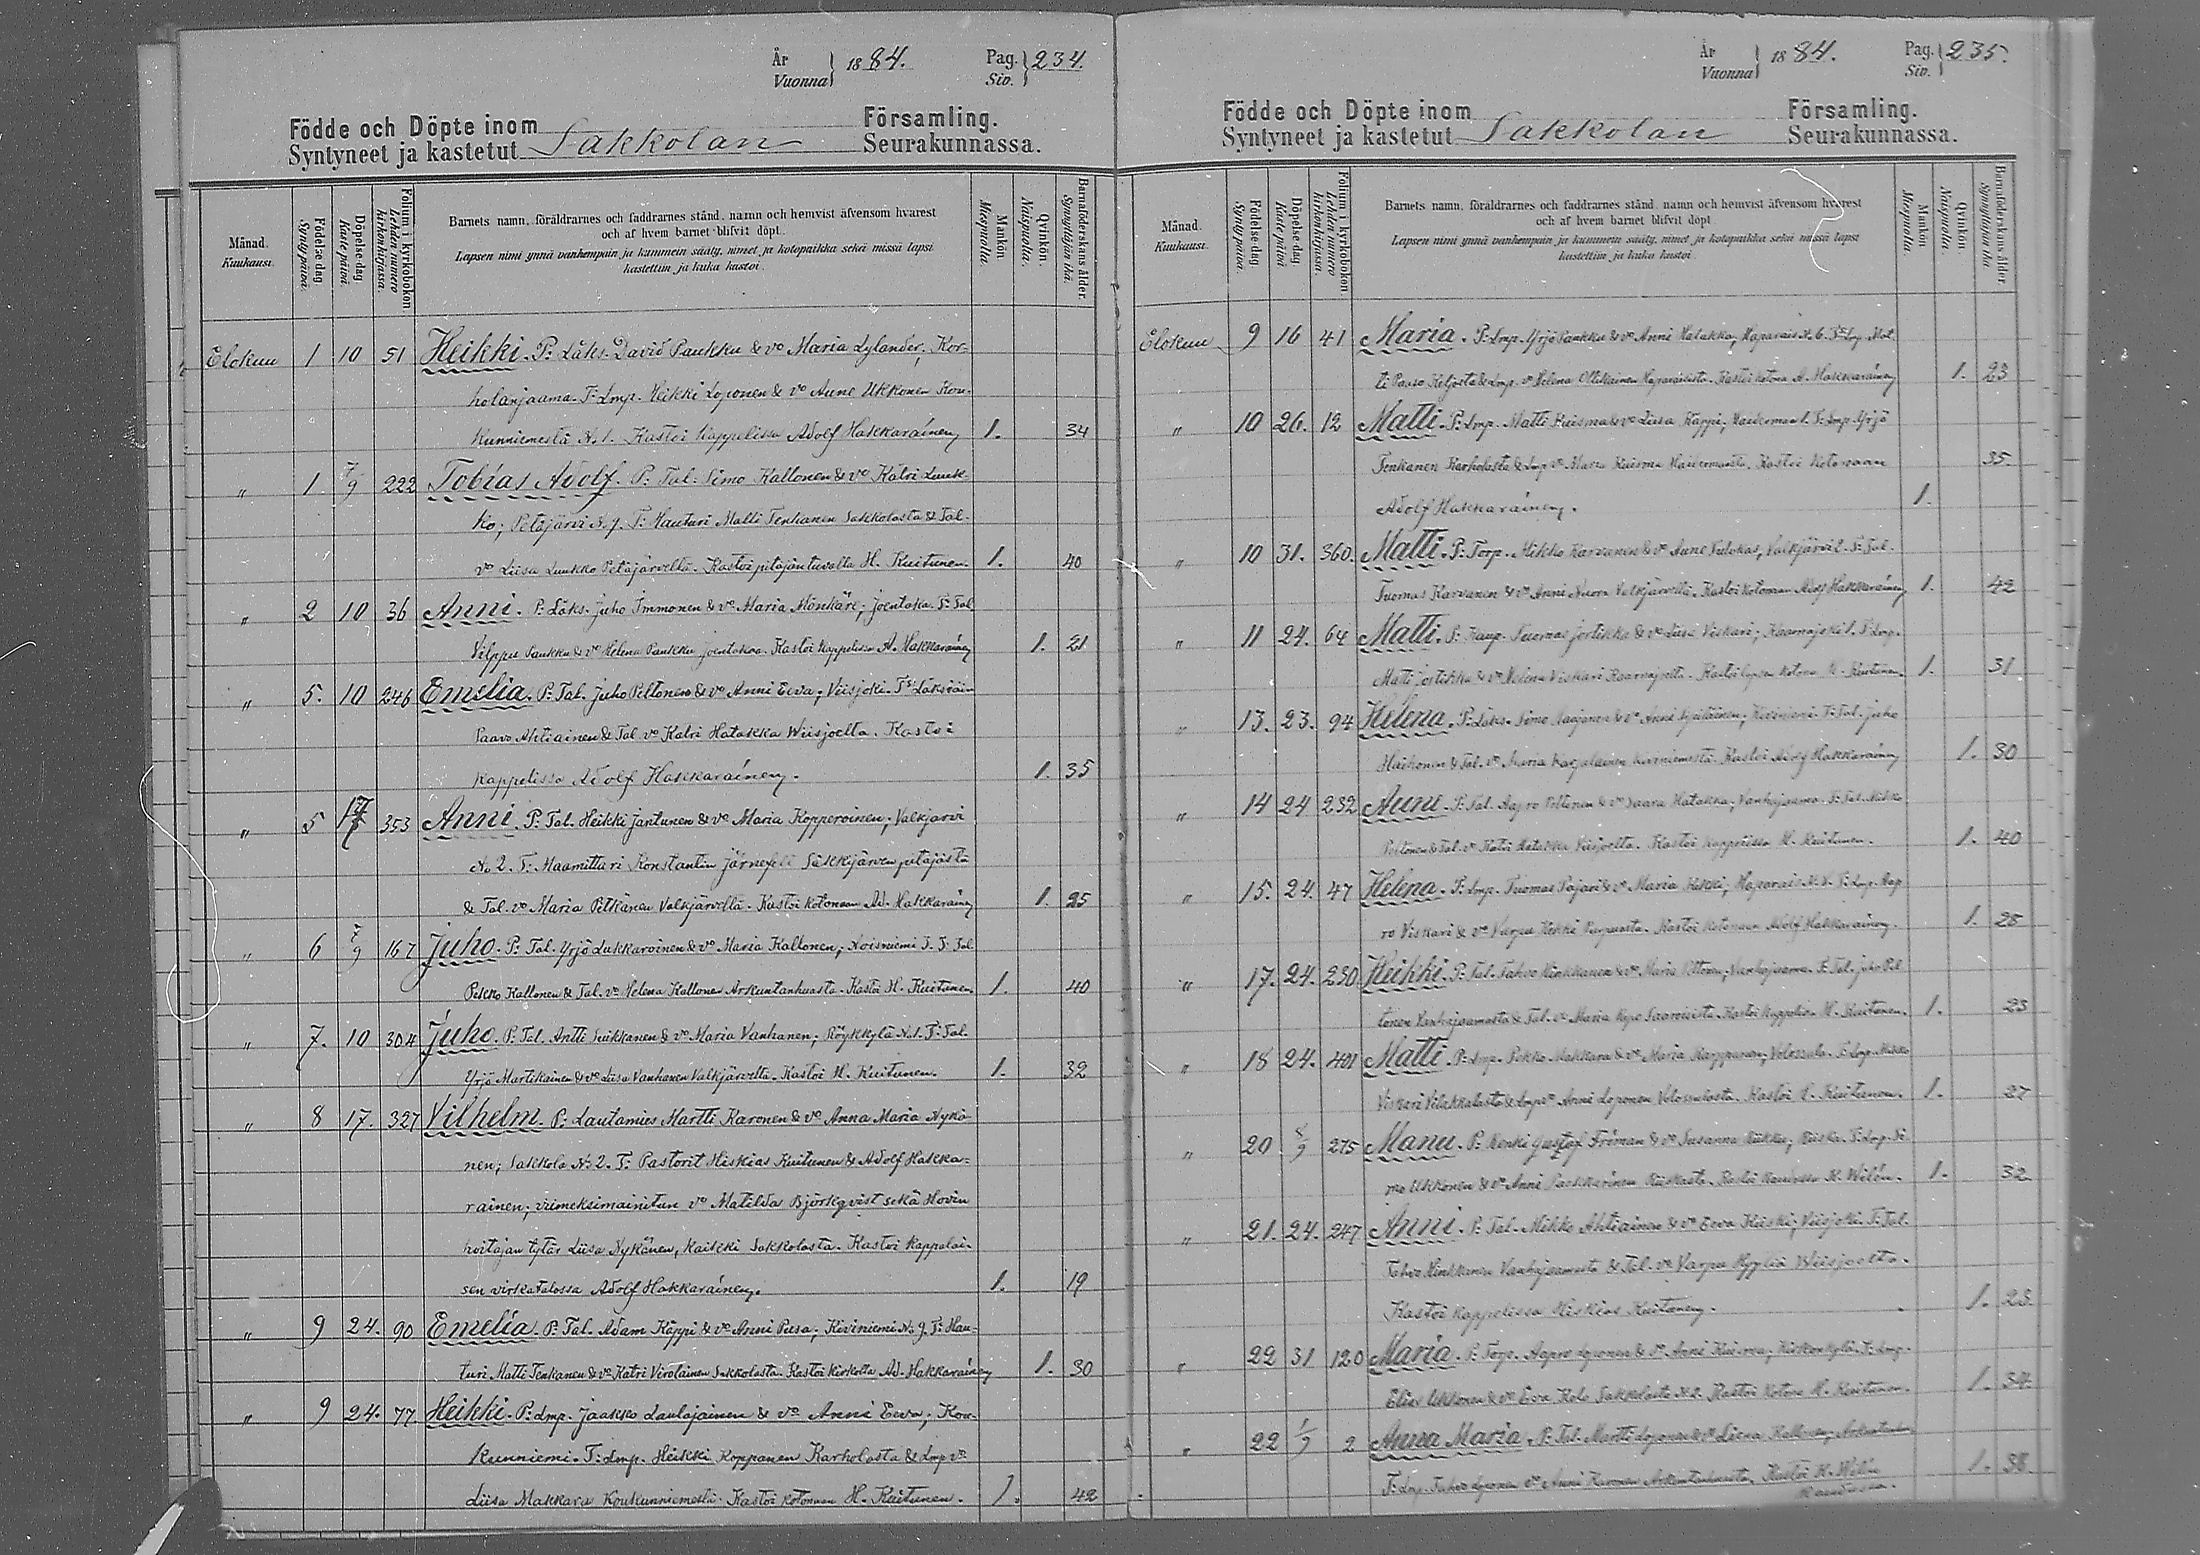 År
Vuonna
1884.
Pag.
Siv.
234.
Födde och Döpte inom
Syntyneet ja kastetut
Sakkolan
Församling.
Seurakunnassa.
Månad.
Kuukausi.
Födelse dag.
Syntypäivä.
Döpelse dag.
Kastepäivä.
Folium i kyrkoboken.
Lehden numero kirkonkirjassa.
Barnets namn, föräldrarnes och faddrarnes stånd, namn och hemvist äfvensom hvarest
och af hvem barnet blifvit döpt.
Lapsen nimi ynnä vanhempain ja kummein sääty, nimet ja kotopaikka sekä missä lapsi
kastettiin ja kuka kastoi.
Mankön.
Miespuolia.
Qvinkön.
Naispuolia.
Barnaföderskans ålder.
Synnyttäjän ikä.
Elokuu 1 10 51 Heikki. P: Läks. David Paukku & vo Maria Lylander, Kor-
holanjaama. T: Lmp. Heikki Loponen & vo Anne Ukkonen Kou-
kunniemestä N:1. Kastoi Kappelissa Adolf Hakkaráinen 1. 34
" 1 7/9 222 Tobias Adolf. P: Tal. Simo Kallonen & vo Katri Luuk-
ko; Petäjärvi N:7. T: Hauturi Matti Tenkanen Sakkolasta & Tal.
vo Liisa Luukko Petäjärveltä. Kastoi pitäjäntuvalla H. Kuitunen. 1. 40
" 2 10 36 Anni. P: Läks. Juho Immonen & vo Maria Mönkäre; Joentaka. T: Tal
Vilppu Paukku & vo Helena Paukku Joentakaa. Kastoi Kappelissa A. Hakkaráinen 1. 21
" 5. 10 246 Emelia. P: Tal. Juho Peltonen & vo Anni Eeva; Viisjoki. T:
Paavo Ahtiainen & Tal vo Katri Hatakka Wiisjoelta. Kastoi
Kappelissa Adolf Hakkaráinen. 1. 35
" 5 17 353 Anni. P: Tal. Heikki Jantunen & vo Maria Kopperoinen; Valkjarvi
No 2. T: Maamittari Konstantin Järnefelt Säkkijärven pitäjästä
& Tal. vo Maria Pitkänen Valkjärveltä. Kastoi kotonaan Ad. Hakkaráinen 1. 25
" 6 7/9 167 Juho. P: Tal. Yrjö Lukkaroinen & vo Maria Kallonen; Noisniemi 3. T: Tal
Pekko Kallonen & Tal. vo Helena Kallonen Arkuntanhuasta. Kastoi H. Kuitunen 1. 40
" 7. 10 304 Juho. P: Tal. Antti Suikkanen & vo Maria Vanhanen; Röykkylä N:1. T: Tal.
Yrjö Martikainen & vo Liisa Vanhanen Valkjärveltä. Kastoi H. Kuitunen. 1. 32
" 8 17. 327 Vilhelm. P: Lautamies Martti Karonen & vo Anna Maria Nykä-
nen; Sakkola No 2. T: Pastorit Hiskias Kuitunen & Adolf Hakka-
rainen; viimeksimainitun vo Matilda Björkqvist sekä Hovin
hoitajan tytär Liisa Nykänen, Kaikki Sakkolasta. Kastoi Kappalai-
sen virkatalossa Adolf Hakkaráinen. 1. 19
" 9 24. 90 Emelia. P: Tal. Adam Käppi & vo Anni Pusa; Kiviniemi No 9. T: Hau-
turi Matti Tenkanen & vo Katri Virolainen Sakkolasta. Kastoi kirkolla Ad. Hakkaráinen 1. 30
" 9 24. 77 Heikki. P: Lmp. Jaakko Laulajainen & vo Anni Eeva; Kou-
kunniemi. T: Lmp. Heikki Koppanen Karholasta & Lmp vo
Liisa Makkara Koukunniemestä. Kastoi kotonaan H. Kuitunen. 1. 42
År
Vuonna
1884.
Pag.
Siv.
235.
Födde och Döpte inom
Syntyneet ja kastetut
Sakkolan
Församling.
Seurakunnassa.
Månad.
Kuukausi.
Födelse dag.
Syntypäivä.
Döpelse dag.
Kastepäivä.
Folium i kyrkoboken.
Lehden numero kirkonkirjassa.
Barnets namn, föräldrarnes och faddrarnes stånd, namn och hemvist äfvensom hvarest
och af hvem barnet blifvit döpt.
Lapsen nimi ynnä vanhempain ja kummein sääty, nimet ja kotopaikka sekä missä lapsi
kastettiin ja kuka kastoi.
Mankön.
Miespuolia.
Qvinkön.
Naispuolia.
Barnaföderskans ålder.
Synnyttäjän ikä.
Elokuu 9 16 41 Maria. P: Lmp. Yrjö Paukku & vo Anni Hatakka, Haparais N. 6. T: Lmp. Mat-
ti Paaso & Lmp. vo Helena Ollikainen Haparaisista. Kastoi kotona A. Hakkaráinen 1. 23
" 10 26. 12 Matti. P: Lmp. Matti Kuisma & vo Liisa Käppi, Haitermaa 1. T: Lmp. Yrjö
Tenkanen Karholasta & Lmp vo Maria Kuisma Haitermaasta. Kastoi kotonaan 35.
Adolf Hakkaráinen. 1.
" 10 31. 360. Matti. P: Torp. Mikko Karvanen & vo Anne Pulakas, Valkjärvi 2. T: Tal.
Tuomas Karvanen & vo Anni Valkjärveltä. Kastoi kotonaan Adolf Hakkaráinen 1. 42
" 11 24. 64 Matti. P: Kaup. Tuomas Jortikka & vo Liisa Viskari; Haarnajoki 1. T: Lmp.
Matti Jortikka & vo Helena Viskari. Kastoi lapsen kotona H. Kuitunen. 1. 31
" 13. 23. 94 Helena. P: Läks. Simo & vo Anni; Kiviniemi. T: Tal. Juho
& Tal. vo Maria Karjalainen Kiviniemestä. Kastoi Adolf Hakkaráinen 1. 30
" 14 24 232 Anni. P: Tal. Aapro Peltonen & vo Saara Hatakka, Vanhajaama. T: Tal. Mikko
Peltonen & Tal. vo Katri Hatakka Viisjoelta. Kastoi Kappelissa H. Kuitunen. 1. 40
" 15. 24. 47 Helena. P: Lmp. Tuomas Pajari & vo Maria; Haparais N. T: Lmp. Aap-
ro Viskari & vo Varpu. Kastoi kotonaan Adolf Hakkaráinen. 1. 25
" 17. 24. 230 Heikki. P: Tal. Tahvo Kinkkanen & vo Maria; Vanhajaama. T: Tal. Juho Pel-
tonen Vanhajaamasta & Tal. vo Maria. Kastoi Kappelissa H. Kuitunen. 1. 23
" 18 24. 401 Matti. P: Lmp. Pekko Makkara & vo Maria Kopponen, Volossula. T: Lmp. Mikko
Viskari Vilakkalasta & Lmp vo Anni Loponen Volossulasta. Kastoi H. Kuitunen. 1. 27
" 20 8/9 275 Manu. P: Renki Gustaf Fröman & vo Susanna Kiikku; Riiska. T: Lmp. Si-
mo Ukkonen & vo Anni Riiskasta. Kastoi Raudussa K. Wilén. 1. 32
" 21. 24. 247 Anni. P: Tal. Mikko Ahtiainen & vo Eeva Kiiski; Viisjoki. T: Tal.
Tahvo Kinkkanen Vanhajaamasta & Tal. vo Varpu Wiisjoelta.
Kastoi Kappelissa Hiskias Kuitunen. 1. 23.
" 22 31 120 Maria. P: Torp. Aapro Loponen & vo Anni Kuisma, Kirkonkylä. T: Lmp.
Elias Ukkonen & vo Eeva Sakkolasta N:2. Kastoi kotona H. Kuitunen. 1. 34
" 22 1/9 2 Anna Maria. P: Tal. Martti Loponen & vo Liena Kallonen, Arkuntanhua
T: Lmp. Tahvo Loponen vo Anni Karonen Arkuntanhuasta. Kastoi K. Wilén 1. 38.
Raudussa.